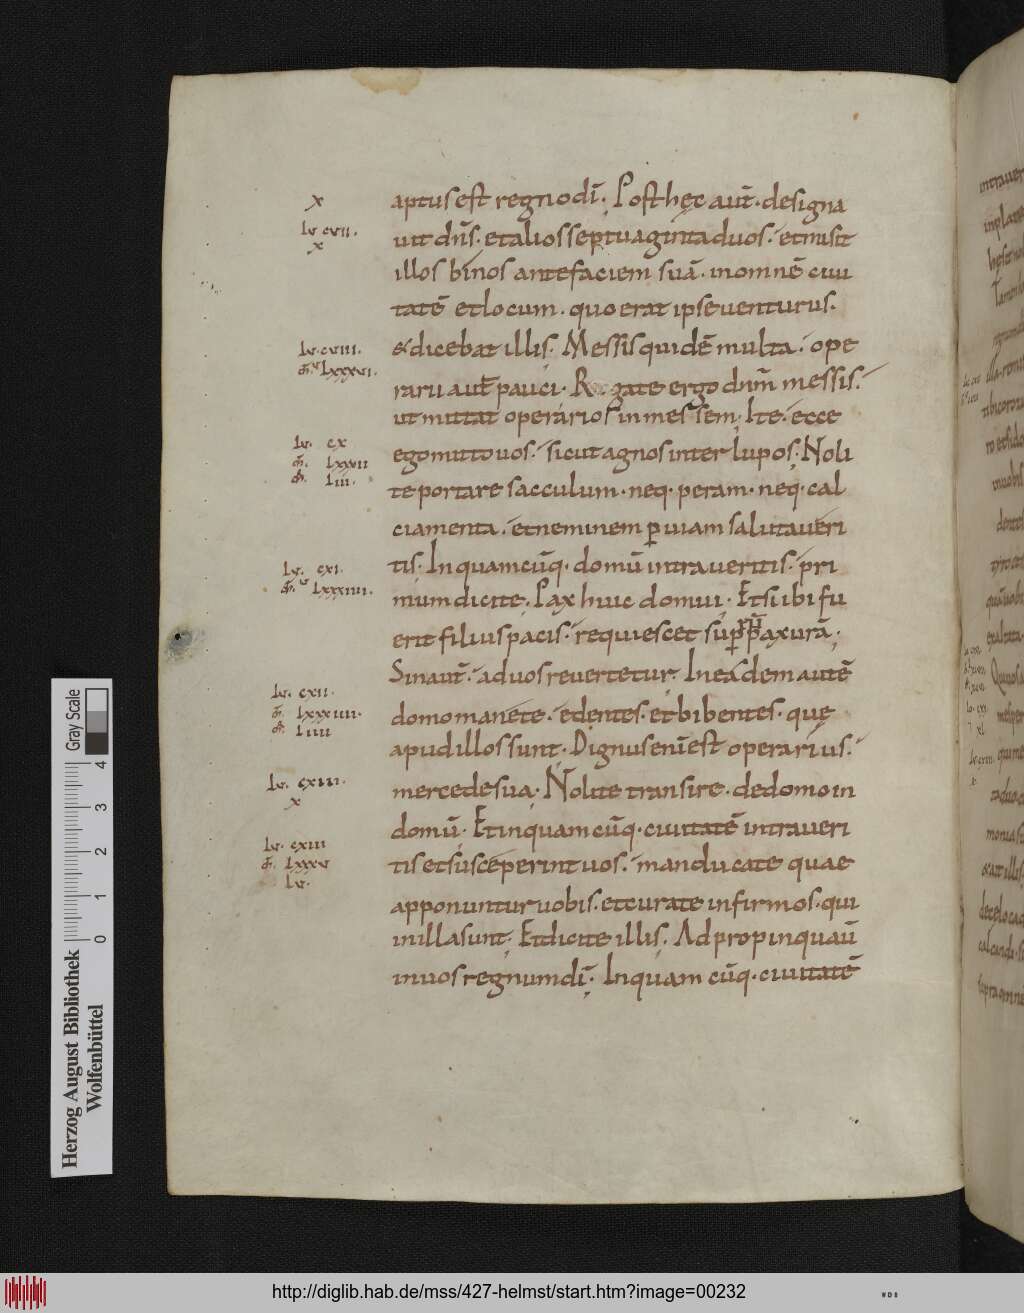 x
Lv. cvii.
x
aptus est regno dī. Post hęc aut̄. designa
uit dn̄s. et alios septuaginta duos. et misit
illos binos ante faciem suā. in omnē ciui
tatē et locum. quo erat ipse uenturus.
Lv. cviii.
Lxxxvi.
& dicebat illis. Messis quidē multa. ope
rarii aut̄ pauci. Rogate ergo dnm̄ messis.
ut mittat operarios in messem. Ite. ecce
Lv. cx
Lxxxvii
Liii.
ego mitto uos. sicut agnos inter lupos. Noli
te portare sacculum. neq. peram. neq. cal
ciamenta. et neminem p̱ uiam salutaueri
Lv. cxi.
Lxxxiiii.
tis. In quamcūq. domū intraueritis. pri
mum dicite. Pax huic domui. Et si ibi fu
erit filius pacis. requiescet sup̱ pax urā.
Sin aut̄. ad uos reuertetur. In eadem autē
Lv. cxii.
Lxxxiiii.
Liiii
domo manete. edentes. et bibentes. quę
apud illos sunt. Dignus enī est operarius.
Lv. cxiii.
x
mercede sua. Nolite transire. de domo in
domū. Et in quamcūq. ciuitatē intraueri
Lv. cxiii
Lxxxv
Lv.
tis et susceperint uos. manducate quae
apponuntur uobis. et curate infirmos. qui
in illa sunt. Et dicite illis. Adpropinquaū
in uos regnum dī. In quamcūq. ciuitatē
Herzog August Bibliothek
Wolfenbüttel
0 1 2 3 4
Gray Scale
http://diglib.hab.de/mss/427-helmst/start.htm?image=00232